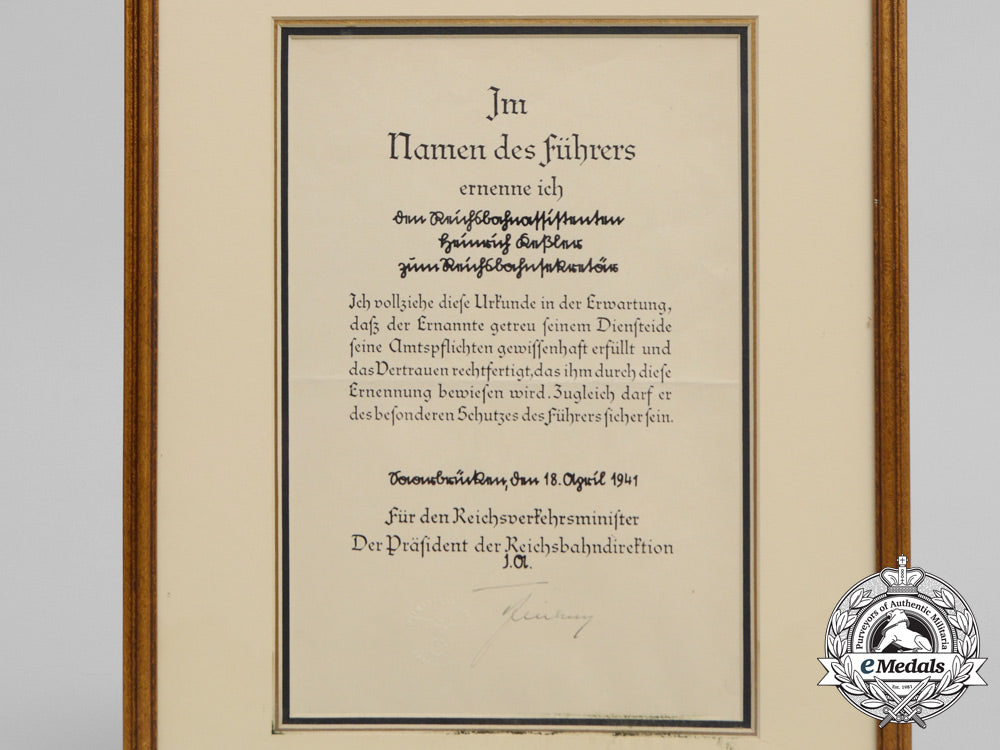 Im
Namen des Führers
ernenne ich
den Reichsbahnassistenten
Heinrich Keßler
zum Reichsbahnsekretär
Ich vollziehe diese Urkunde in der Erwartung,
daß der Ernannte getreu seinem Diensteide
seine Amtspflichten gewissenhaft erfüllt und
das Vertrauen rechtfertigt, das ihm durch diese
Ernennung bewiesen wird. Zugleich darf er
des besonderen Schutzes des Führers sicher sein.
Saarbrücken, den 18. April 1941
Für den Reichsverkehrsminister
Der Präsident der Reichsbahndirektion
I.A.
Purveyors of Authentic Militaria
eMedals
Est. 1987